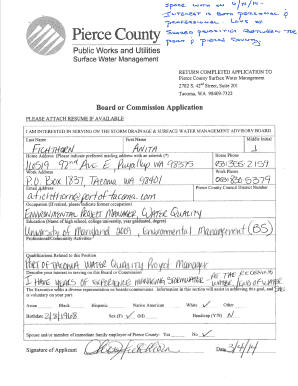 SPOKE WITH ON 4/14/14 -
INTEREST IS BOTH PERSONAL &
PROFESSIONAL. LOOK AT
SHARED PRIORITIES BETWEEN THE
PORT & PIERCE COUNTY
Pierce County
Public Works and Utilities
Surface Water Management
RETURN COMPLETED APPLICATION TO
Pierce County Surface Water Management
2702 S. 42nd Street, Suite 201
Tacoma, WA 98409-7322
Board or Commission Application
PLEASE ATTACH RESUME IF AVAILABLE
I AM INTERESTED IN SERVING ON THE STORM DRAINAGE & SURFACE WATER MANAGEMENT ADVISORY BOARD
Last Name First Name Middle Initial
FICHTHORN ANITA
Home Address (Please indicate preferred mailing address with an asterisk (*) Home Phone
Ave E Puyallup WA 98375
Work Address Work Phone
P.O. Box 1837, Tacoma WA 98401
Email Address Pierce County Council District Number
afichthorn@portoftacoma.com
Occupation (If retired, please indicate former occupation)
ENVIRONMENTAL PROJECT MANAGER, WATER QUALITY
Education (Name of high school, college, university, year graduated, degree)
University of Maryland 2009, Environmental Management (BS)
Professional/Community Activities
Qualifications Related to this Position
PORT OF TACOMA WATER Quality Project Manager
Describe your interest in serving on this Board or Commission
I HAVE YEARS OF EXPERIENCE MANAGING STORMWATER
The Executive seeks a diverse representation on boards/commissions. Information in this section will assist in achieving this goal, and
is voluntary on your part.
Asian Black Hispanic Native American White ✓ Other
Birthdate Sex (F) ✓ (M) Handicap (Y/N) N
Spouse and/or member of immediate family employee of Pierce County: Yes No ✓
Signature of Applicant Date 3/4/14